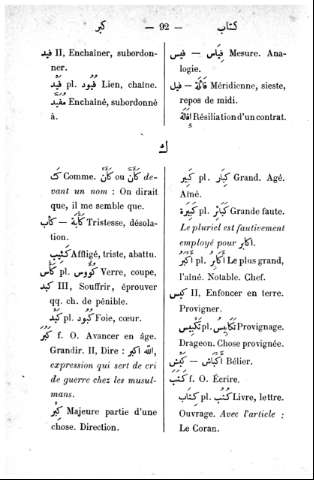 كبر — 92 — كتاب
قيد II, Enchaîner, subordon-
ner.
قَيْد pl. قُيُود Lien, chaîne.
مقيّد Enchaîné, subordonné
à.
قيس — قِيَاس Mesure. Ana-
logie.
قيل — قَائِلَة Méridienne, sieste,
repos de midi.
اقالة Résiliation d'un contrat.
ك
كَ Comme. كَأَنَّ ou كَأَنْ de-
vant un nom : On dirait
que, il me semble que.
كآب — كَآبَة Tristesse, désola-
tion.
كَئِيب Affligé, triste, abattu.
كَأْس pl. كُؤُوس Verre, coupe,
كبد III, Souffrir, éprouver
qq. ch. de pénible.
كَبِد pl. كُبُود Foie, cœur.
كَبُرَ f. O. Avancer en âge.
Grandir. II, Dire : الله اكبر,
expression qui sert de cri
de guerre chez les musul-
mans.
كُبْر Majeure partie d'une
chose. Direction.
كَبِير pl. كِبَار Grand. Agé.
Aîné.
كَبِيرَة pl. كَبَائِر Grande faute.
Le pluriel est fautivement
employé pour أكابر.
أَكْبَر pl. أَكَابِر Le plus grand,
l'aîné. Notable. Chef.
كبس II, Enfoncer en terre.
Provigner.
تَكْبِيس pl. تَكَابِيس Provignage.
Drageon. Chose provignée.
كَبْش — أَكْبَاش Bélier.
كَتَبَ f. O. Écrire.
كِتَاب pl. كُتُب Livre, lettre.
Ouvrage. Avec l'article :
Le Coran.